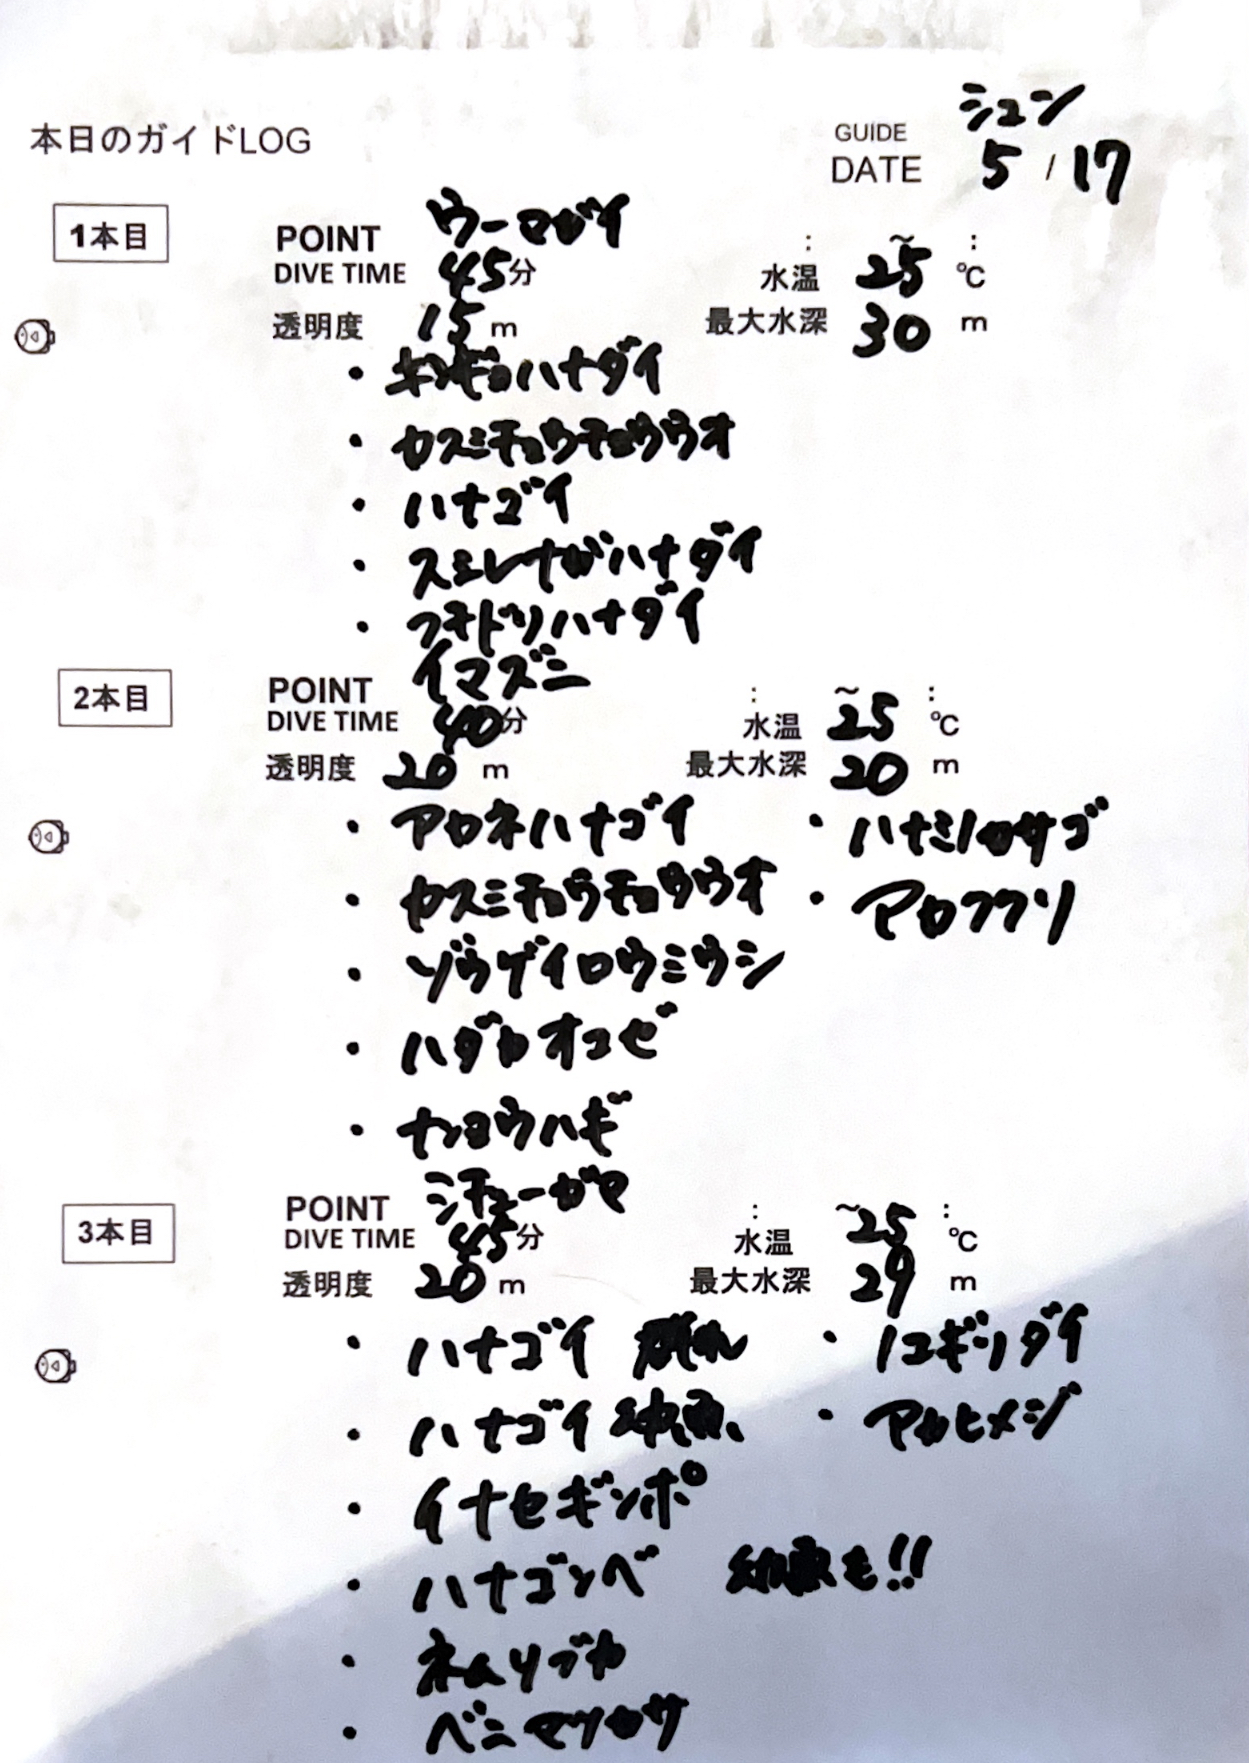 シュン
本日のガイドLOG
GUIDE
DATE 5 / 17
1本目
POINT ウーマガイ
DIVE TIME 45分
: ~ :
水温 25 ℃
透明度 15 m
最大水深 30 m
・キンギョハナダイ
・カスミチョウチョウウオ
・ハナゴイ
・スミレナガハナダイ
・フチドリハナダイ
2本目
POINT イマズニ
DIVE TIME 40分
: ~ :
水温 25 ℃
透明度 20 m
最大水深 20 m
・アカネハナゴイ
・カスミチョウチョウウオ
・ゾウゲイロウミウシ
・ハダカオコゼ
・ナンヨウハギ
・ハナミノカサゴ
・アカククリ
3本目
POINT シチューガマ
DIVE TIME 45分
: ~ :
水温 25 ℃
透明度 20 m
最大水深 29 m
・ハナゴイ 群れ
・ハナゴイ 幼魚
・イナセギンポ
・ハナゴンベ 幼魚も!!
・ネムリブカ
・ベニマツカサ
・ノコギリダイ
・アカヒメジ